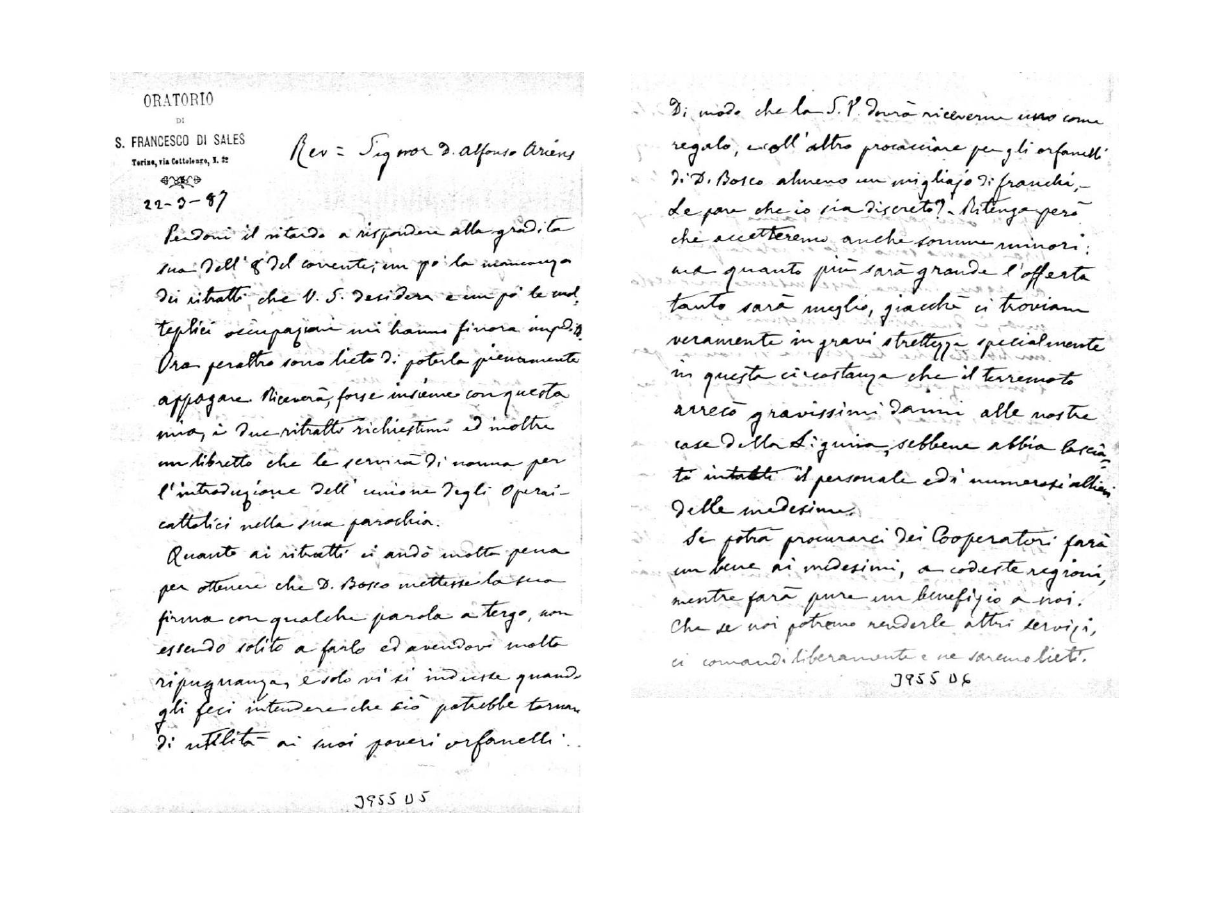 ORATORIO
DI
S. FRANCESCO DI SALES
Torino, via Cottolengo, N. 32
22-3-87
Rev = Signor D. Alfonso Ariens
Perdoni il ritardo a rispondere alla gradita
sua dell' 8 del corrente; un pò la mancanza
dei ritratti che V. S. desidera e un pò le mol-
teplici occupazioni mi hanno finora impedito.
Ora peraltro sono lieto di poterla pienamente
appagare. Riceverà, forse insieme con questa
mia, i due ritratti richiestimi ed inoltre
un libretto che le servirà di norma per
l'introduzione dell' unione degli Operai-
cattolici nella sua parochia.
Quanto ai ritratti ci andò molta pena
per ottenere che D. Bosco mettesse la sua
firma con qualche parola a tergo, non
essendo solito a farlo ed avendovi molta
ripugnanza, e solo vi si indusse quando
gli feci intendere che ciò potrebbe tornare
di utilità ai suoi poveri orfanelli.
J955 D5
Di modo che la S. V. dovrà riceverne uno come
regalo, e coll' altro procacciare per gli orfanelli
di D. Bosco almeno un migliajo di franchi.-
Le pare che io sia discreto? - Ritenga però
che accetteremo anche somme minori:
ma quanto più sarà grande l'offerta
tanto sarà meglio, giacchè ci troviam
veramente in gravi strettezze specialmente
in questa circostanza che il terremoto
arrecò gravissimi danni alle nostre
case della Liguria, sebbene abbia lascia-
to il personale ed i numerosi allievi
delle medesime.
Se potrà procurarci dei Cooperatori farà
un bene ai medesimi, a codeste regioni,
mentre farà pure un benefizio a noi.
Che se noi potremo renderle altri servizi,
ci comandi liberamente e ne saremo lieti.
J955 D6